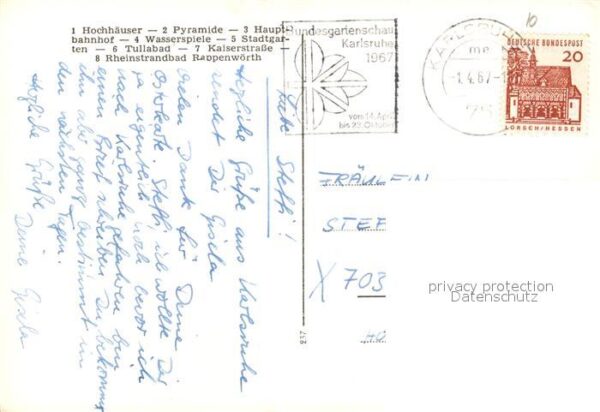 1 Hochhäuser — 2 Pyramide — 3 Haupt-
bahnhof — 4 Wasserspiele — 5 Stadtgar-
ten — 6 Tullabad — 7 Kaiserstraße —
8 Rheinstrandbad Rappenwörth
Bundesgartenschau
Karlsruhe
1967
vom 14. April
bis 23. Oktober
KARLSRUHE
me
-1.4.67-1
75
DEUTSCHE BUNDESPOST
20
LORSCH/HESSEN
Liebe Steffi!
Herzliche Grüße aus Karlsruhe
sendet Dir Gisela
Vielen Dank für Deine
Osterkarte. Steffi, ich wollte Dir
ja eigentlich noch bevor ich
nach Karlsruhe gefahren bin
einen Brief schreiben. Du bekommst
ihn aber ganz bestimmt in
den nächsten Tagen.
Herzliche Grüße
Deine Gisela
FRÄULEIN
STEF
X 703
privacy protection
Datenschutz